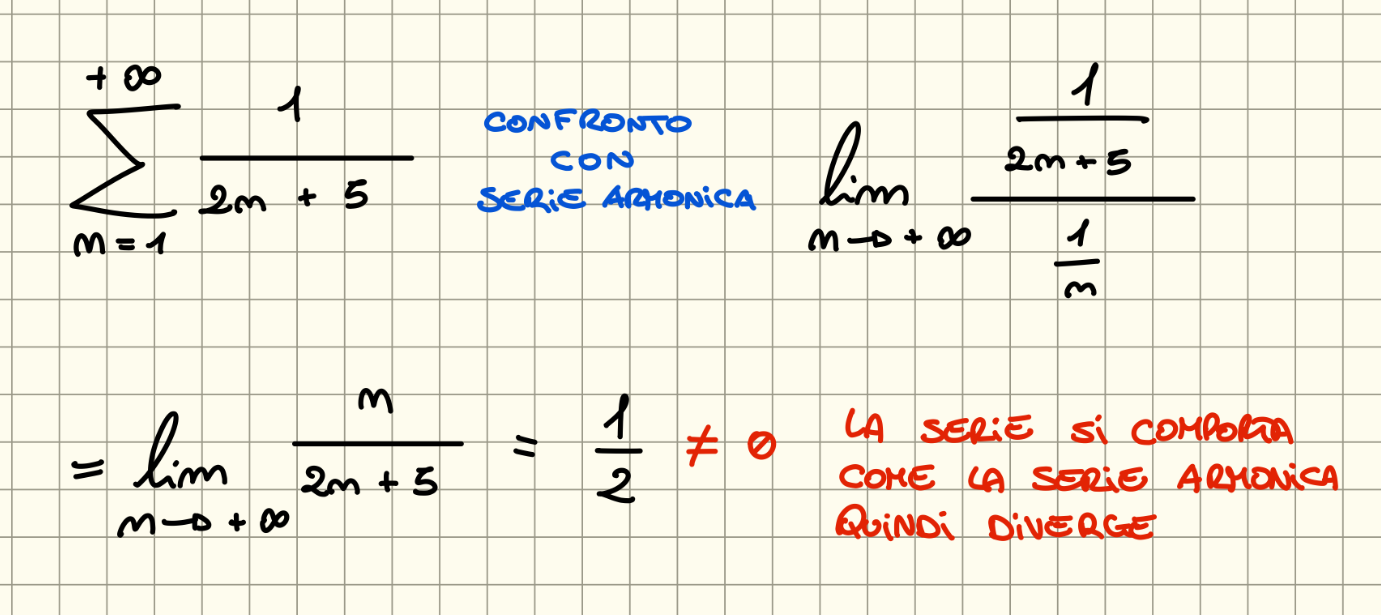 +∞
∑ 1/(2n + 5)
n = 1
CONFRONTO
CON
SERIE ARMONICA
lim n→+∞ (1/(2n + 5))/(1/n)
= lim n→+∞ n/(2n + 5) = 1/2 ≠ 0
LA SERIE SI COMPORTA
COME LA SERIE ARMONICA
QUINDI DIVERGE